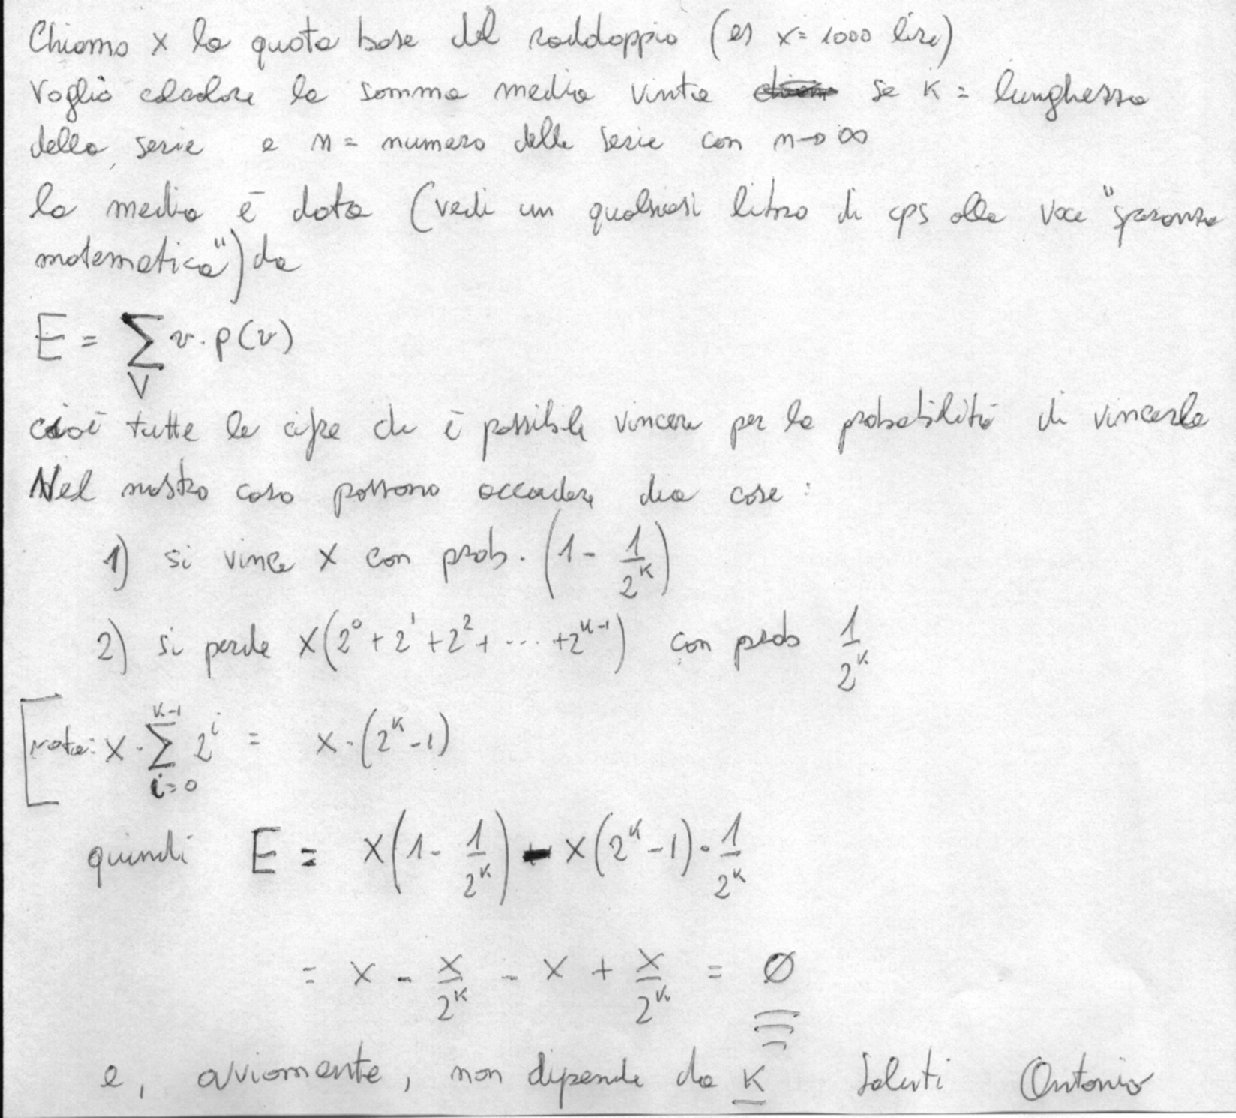 Chiamo x la quota base del raddoppio (es x = 1000 lire)
Voglio calcolare la somma media vinta se K = lunghezza
della serie e n = numero delle serie con n→∞
la media è data (vedi un qualsiasi libro di cps alla voce "speranza
matematica") da
E = ∑ v·p(v)
V
cioè tutte le cifre che è possibile vincere per la probabilità di vincerle
Nel nostro caso possono accadere due cose:
1) si vince x con prob. (1 - 1/2^K)
2) si perde x(2^0 + 2^1 + 2^2 + ... + 2^(K-1)) con prob 1/2^K
[nota: x · ∑_{i=0}^{K-1} 2^i = x·(2^K - 1)
quindi E = x(1 - 1/2^K) - x(2^K - 1)·1/2^K
= x - x/2^K - x + x/2^K = Ø
e, ovviamente, non dipende da K Saluti Antonio